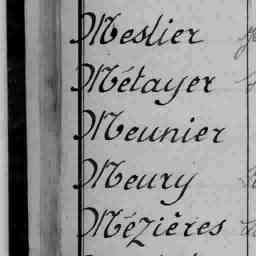 Meslier
Métayer
Meunier
Meury
Mézières